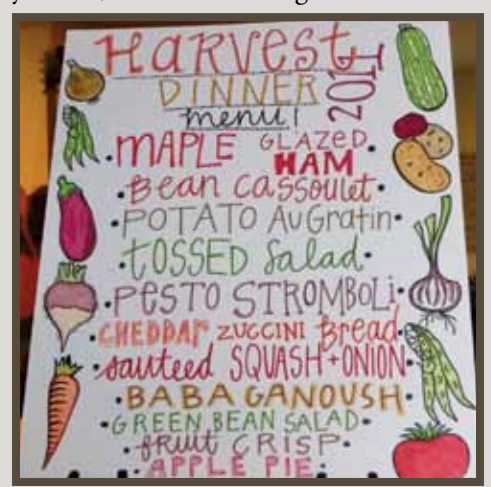 Harvest
DINNER 2011
menu!
• MAPLE GLAZED HAM •
• Bean cassoulet •
• POTATO Au Gratin •
• tOSSED Salad •
• PESTO STROMBOLi •
• CHEDDAR ZUCCINI Bread •
• sauteed SQUASH + ONION •
• BABA GANOUSH •
• GREEN BEAN SALAD •
• fruit CRISP •
• APPLE PIE •